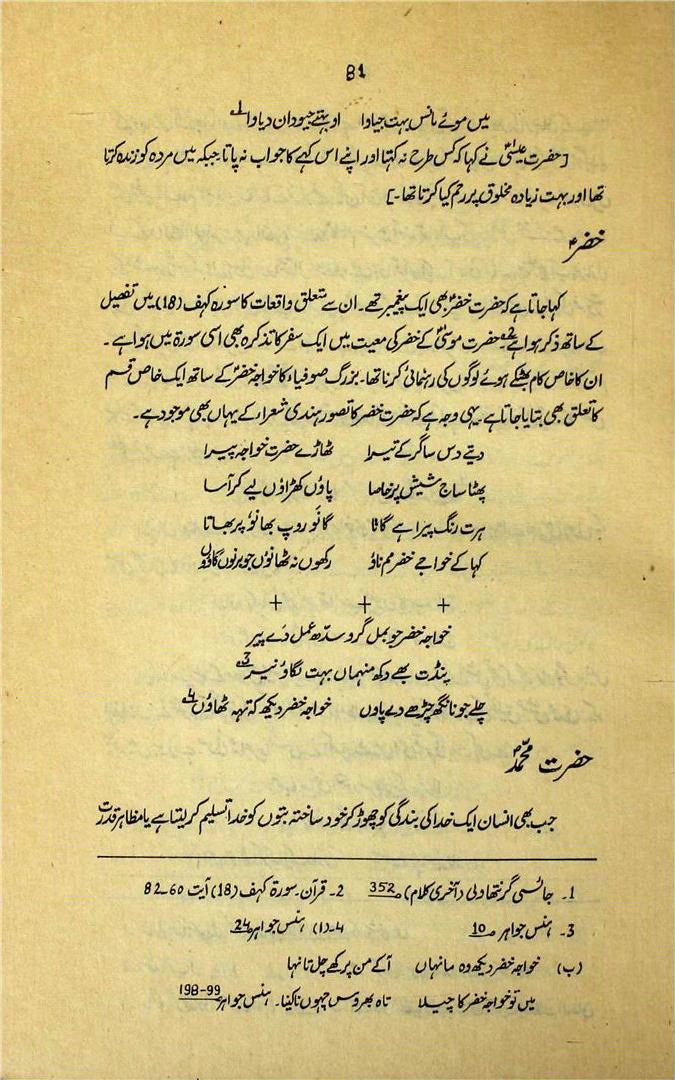 81
میں موئے مانس بہت جیاوا    او بہتے جیودان دیاوا 1ے
[حضرت عیسیٰؑ نے کہا کہ کس طرح نہ کہتا اور اپنے اس کہے کا جواب نہ پاتا۔ جبکہ میں مردہ کو زندہ کرتا
تھا اور بہت زیادہ مخلوق پر رحم کیا کرتا تھا۔]
خضرؑ
کہا جاتا ہے کہ حضرت خضرؑ بھی ایک پیغمبر تھے۔ ان سے متعلق واقعات کا سورہ کہف (18) میں تفصیل
کے ساتھ ذکر ہوا ہے 2ے۔ حضرت موسیٰؑ کے خضر کی معیت میں ایک سفر کا تذکرہ بھی اسی سورۃ میں ہوا ہے۔
ان کا خاص کام بھٹکے ہوئے لوگوں کی رہنمائی کرنا تھا۔ بزرگ صوفیاء کا خواجہ خضرؑ کے ساتھ ایک خاص قسم
کا تعلق بھی بتایا جاتا ہے۔ یہی وجہ ہے کہ حضرت خضر کا تصور ہندی شعراء کے یہاں بھی موجود ہے۔
دیتے دس ساگر کے تیرا    ٹھاڑے حضرت خواجہ پیرا
پھٹا ساج شیش پر خاصا    پاؤں کھڑاؤں لیے کر آسا
ہرت رنگ پیرا ہے گاتا    گانو روپ بھانو پر بھاتا
کہا کے خواجے خضر مم ناؤ    رکھوں نہ ٹھانوں جو برنوں گاؤں
+    +    +
خواجہ خضر جو بمل گرو سدھ عمل دے پیر
پنڈت بھے دکھ منہماں بہت لگاؤ نیر 3ے
چلے جو نانگھ چڑھے دے پاوں    خواجہ خضر دیکھ کہ تہہ ٹھاؤں 4ے
حضرت محمدؐ
جب بھی انسان ایک خدا کی بندگی کو چھوڑ کر خود ساختہ بتوں کو خدا تسلیم کر لیتا ہے یا مظاہر قدرت
1۔ جائسی گرنتھاولی (آخری کلام) صـ 352    2۔ قرآن۔ سورۃ کہف (18) آیت 60-82
3۔ ہنس جواہر صـ 10    4۔ (ا) ہنس جواہر صـ 24
(ب) خواجہ خضر دیکھ وہ سانہاں    آکے من پرکھے چل تانہا
میں تو خواجہ خضر کا چیلا    تاہ بھروس چہوں نا کینا۔ ہنس جواہر 198-99